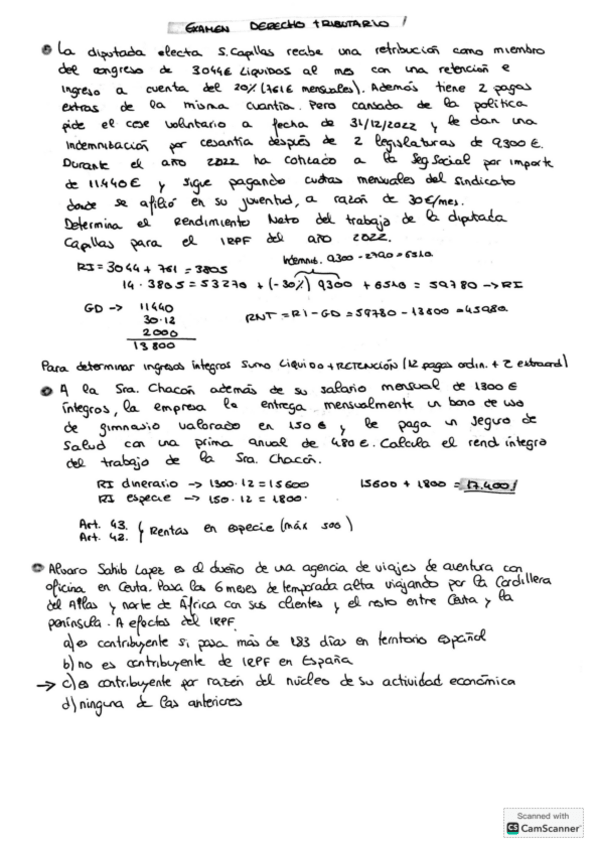 EXAMEN DERECHO TRIBUTARIO 1
La diputada electa S. Capllas recibe una retribución como miembro
del congreso de 3044€ líquidos al mes con una retención e
ingreso a cuenta del 20% (761€ mensuales). Además tiene 2 pagas
extras de la misma cuantía. Pero cansada de la política
pide el cese voluntario a fecha de 31/12/2022 y le dan una
indemnización por cesantía después de 2 legislaturas de 9300 €.
Durante el año 2022 ha cotizado a la Seg. Social por importe
de 11.440€ y sigue pagando cuotas mensuales del sindicato
donde se afilió en su juventud, a razón de 30€/mes.
Determina el Rendimiento Neto del trabajo de la diputada
Capllas para el IRPF del año 2022.
Indemnib. 9300 - 2790 = 6510
RI = 3044 + 761 = 3805
14 · 3805 = 53270 + (-30%) 9300 + 6510 = 59780 → RI
GD → 11440
30·12
2000
13800
RNT = RI - GD = 59780 - 13800 = 45980
Para determinar ingresos íntegros sumo LIQUIDO + RETENCIÓN (12 pagas ordin. + 2 extraord)
A la Sra. Chacón además de su salario mensual de 1300 €
íntegros, la empresa le entrega mensualmente un bono de uso
de gimnasio valorado en 150 € y le paga un seguro de
Salud con una prima anual de 480 €. Calcula el rend. íntegro
del trabajo de la Sra. Chacón.
RI dinerario → 1300·12 = 15600
15600 + 1800 = 17.400
RI especie → 150·12 = 1800
Art. 43.
Art. 42.
Rentas en especie (máx 500)
Alvaro Sahib Lopez es el dueño de una agencia de viajes de aventura con
oficina en Ceuta. Pasa los 6 meses de temporada alta viajando por la Cordillera
del Atlas y norte de África con sus clientes y el resto entre Ceuta y la
península. A efectos del IRPF
a) es contribuyente si pasa más de 183 días en territorio español
b) no es contribuyente de IRPF en España
→ c) es contribuyente por razón del núcleo de su actividad económica
d) ninguna de las anteriores
Scanned with
CS CamScanner